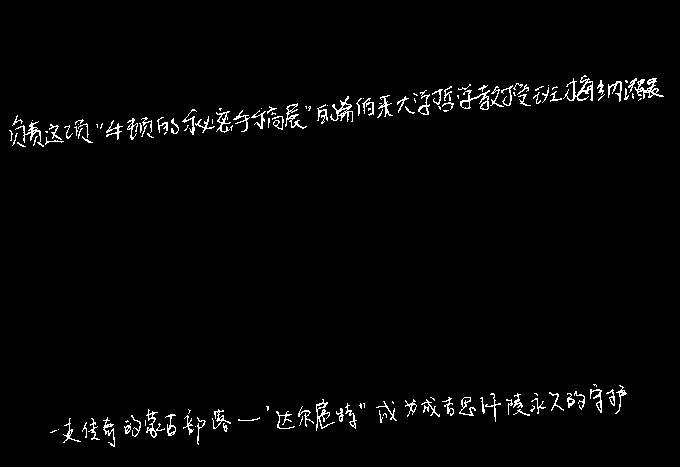 负责这项“牛顿的秘密手稿展”的希伯来大学哲学教授班梅纳湛表
一支传奇的蒙古部落一“达尔扈特”成为成吉思汗陵永久的守护